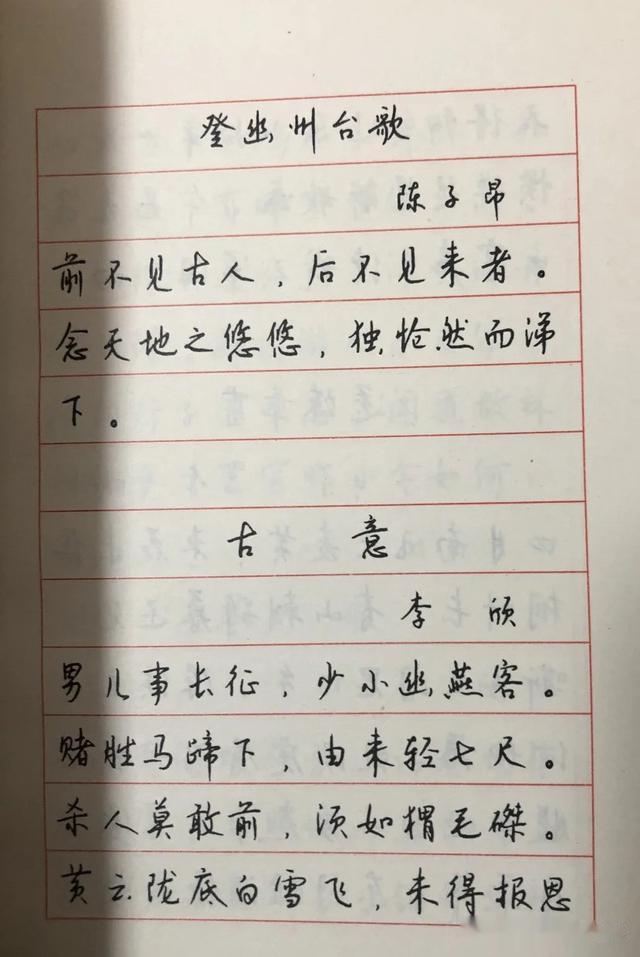 登幽州台歌
陈子昂
前不见古人，后不见来者。
念天地之悠悠，独怆然而涕
下。
古意
李颀
男儿事长征，少小幽燕客。
赌胜马蹄下，由来轻七尺。
杀人莫敢前，须如猬毛磔。
黄云陇底白雪飞，未得报恩